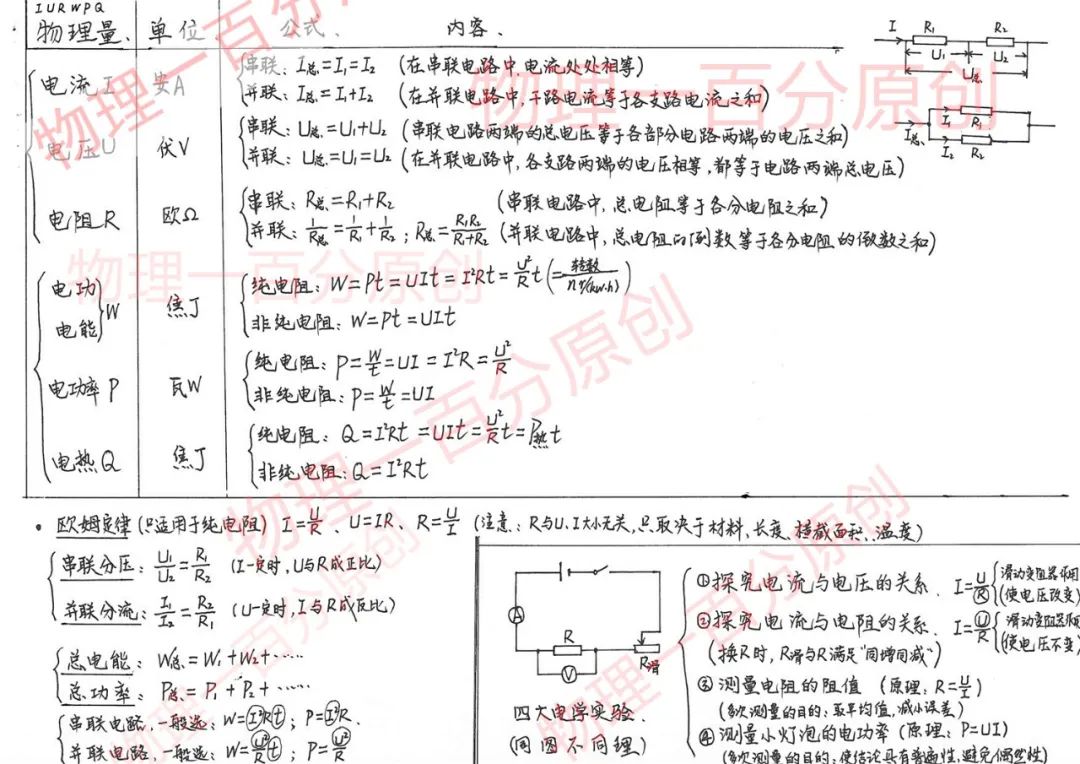 I U R W P Q
物理量、 单位 公式、 内容、
电流I 安A 串联：I总=I₁=I₂ (在串联电路中，电流处处相等)
并联：I总=I₁+I₂ (在并联电路中，干路电流等于各支路电流之和)
电压U 伏V 串联：U总=U₁+U₂ (串联电路两端的总电压等于各部分电路两端的电压之和)
并联：U总=U₁=U₂ (在并联电路中，各支路两端的电压相等，都等于电路两端总电压)
电阻R 欧Ω 串联：R总=R₁+R₂ (串联电路中，总电阻等于各分电阻之和)
并联：1/R总=1/R₁+1/R₂；R总=R₁R₂/R₁+R₂ (并联电路中，总电阻的倒数等于各分电阻的倒数之和)
电功 电能 W 焦J 纯电阻：W=Pt=UIt=I²Rt=U²/R t (=转数/n r/(kw·h))
非纯电阻：W=Pt=UIt
电功率P 瓦W 纯电阻：P=W/t=UI=I²R=U²/R
非纯电阻：P=W/t=UI
电热Q 焦J 纯电阻：Q=I²Rt=UIt=U²/R t=P热t
非纯电阻：Q=I²Rt
I R₁ R₂
U₁ U₂
U总
I₁ R₁
I总 I₂ R₂
• 欧姆定律(只适用于纯电阻) I=U/R、U=IR、R=U/I (注意：R与U、I大小无关，只取决于材料、长度、横截面积、温度)
串联分压：U₁/U₂=R₁/R₂ (I一定时，U与R成正比)
并联分流：I₁/I₂=R₂/R₁ (U一定时，I与R成反比)
总电能：W总=W₁+W₂+……
总功率：P总=P₁+P₂+……
串联电路，一般选：W=I²Rt；P=I²R
并联电路，一般选：W=U²/R t；P=U²/R
A
R
R滑
V
四大电学实验、
(同图不同理)
①探究电流与电压的关系、I=U/R 滑动变阻器作用
(使电压改变)
②探究电流与电阻的关系、I=U/R 滑动变阻器作用
(使电压不变)
(换R时，R滑与R满足"同增同减")
③测量电阻的阻值 (原理：R=U/I)
(多次测量的目的：取平均值，减小误差)
④测量小灯泡的电功率 (原理：P=UI)
(多次测量的目的：使结论具有普遍性，避免偶然性)
物理一百分原创
物理一百分原创
物理一百分原创
物理一百分原创
物理一百分原创
物理一百分原创